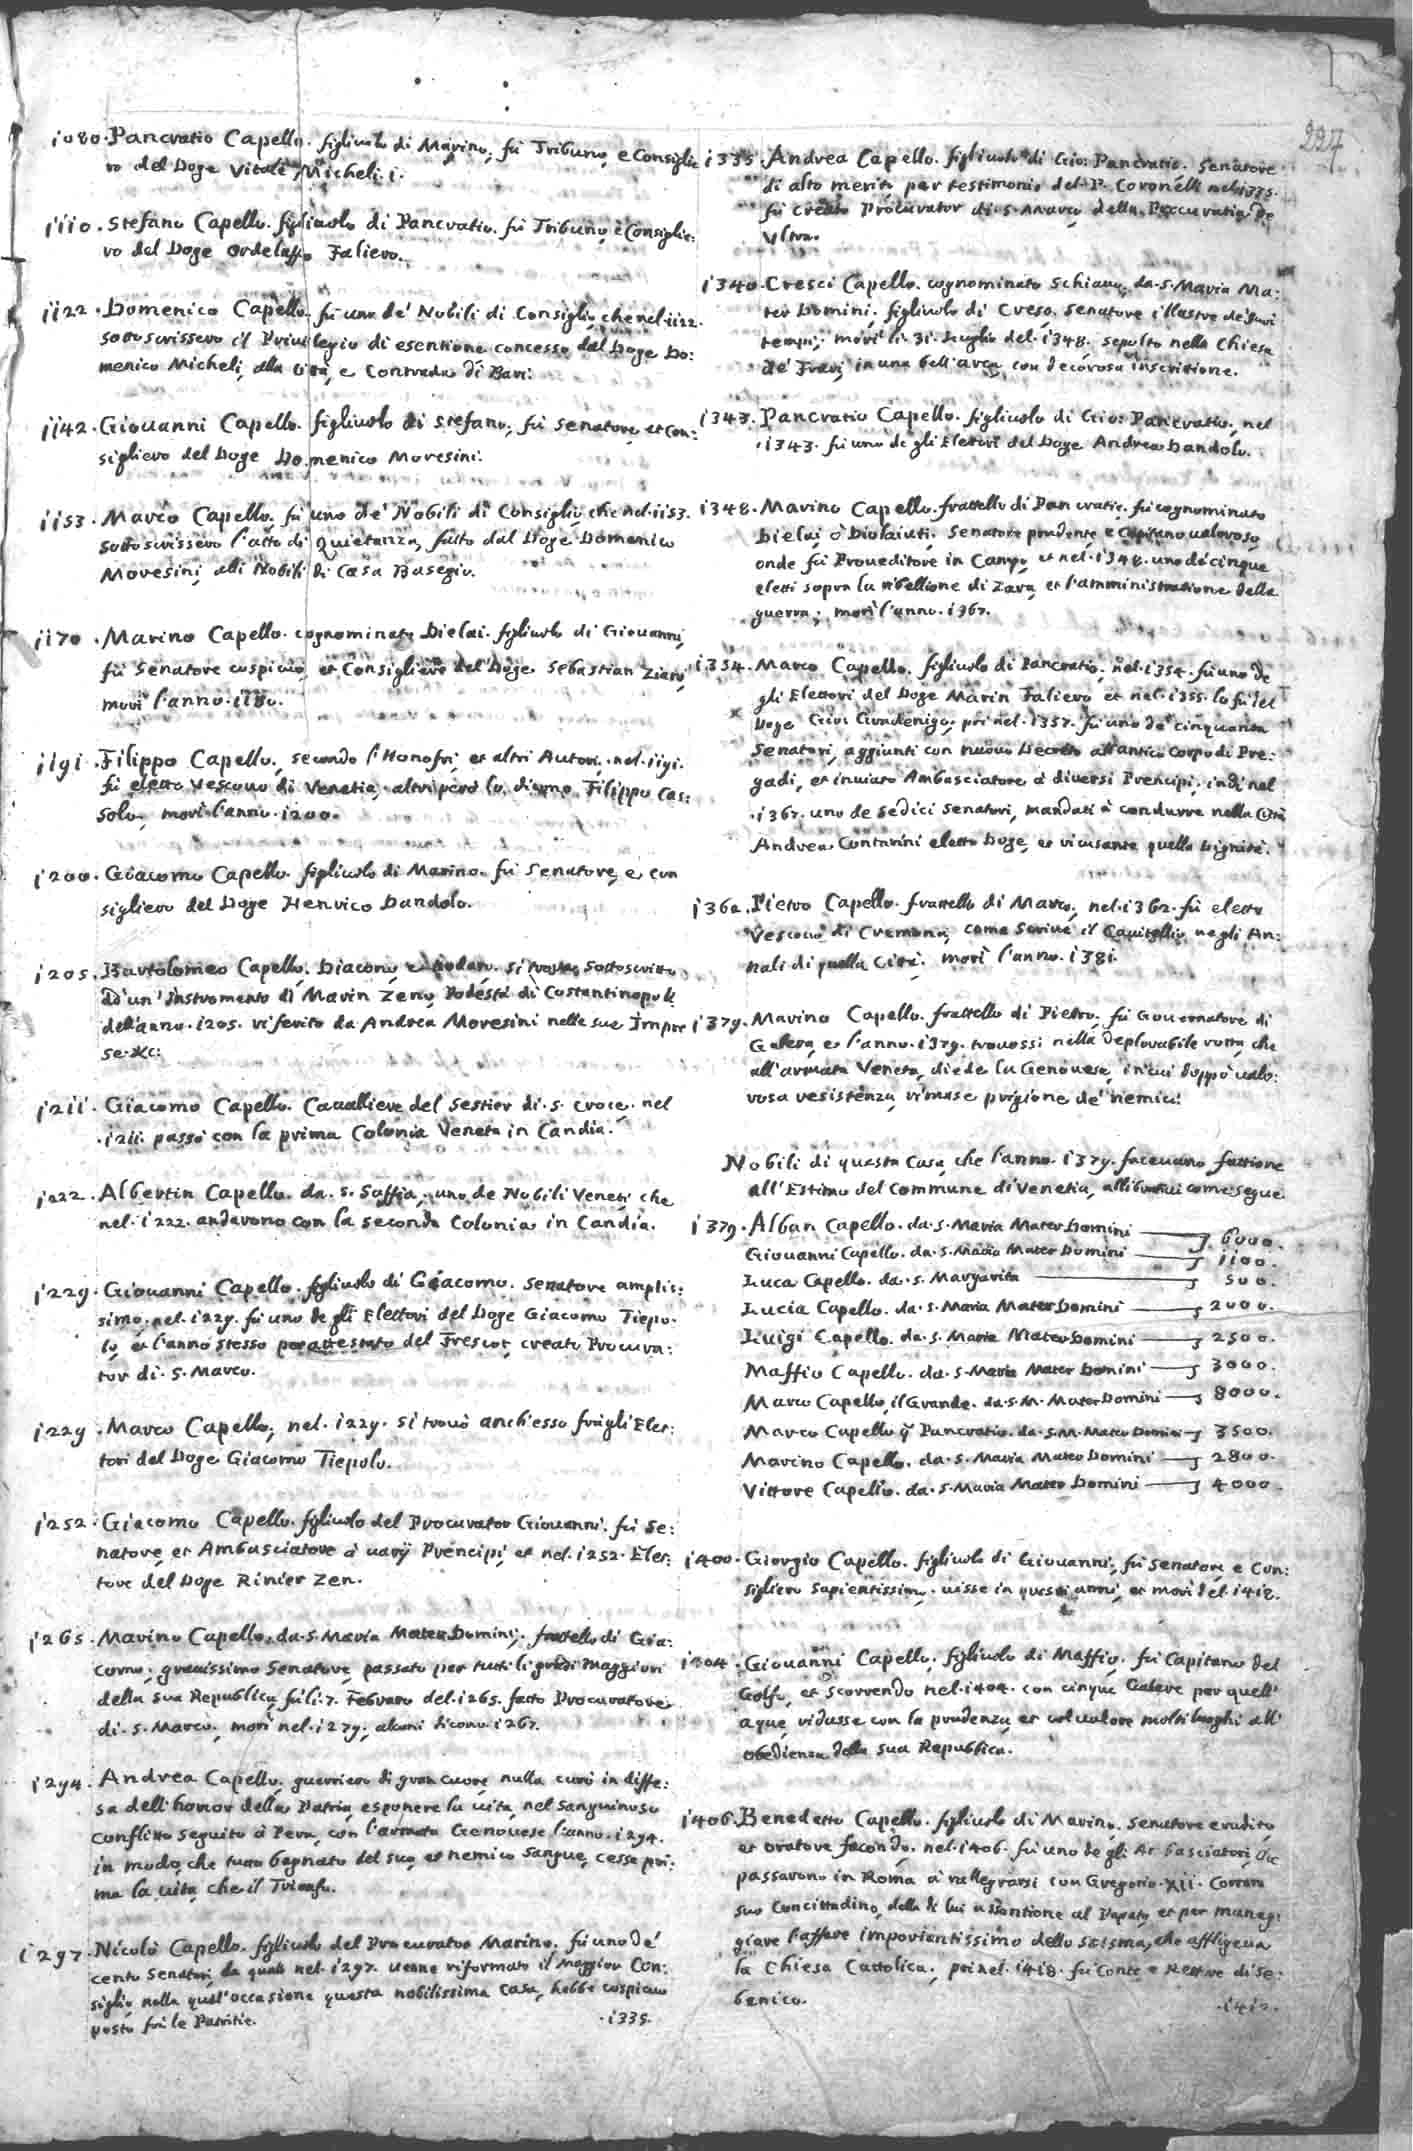 227
1080. Pancratio Capello. figliuolo di Marino, fù Tribuno, e Consiglie
ro del Doge Vitale Micheli. i.
iiio. Stefano Capello. figliuolo di Pancratio. fù Tribuno, e Consiglie:
ro del Doge Ordelaffo Falievo.
ii22. Domenico Capello. fù uno de' Nobili di Consiglio, che nel. ii22.
sottoscrissero il Privilegio di esentione concesso dal Doge Do:
menico Micheli, alla Città, e Contrada di Bari.
ii42. Giouanni Capello. figliuolo di Stefano, fù Senatore, et Con:
sigliero del Doge Domenico Moresini.
ii53. Marco Capello. fù uno de' Nobili di Consiglio, che nel. ii53.
sottoscrissero l'atto di Quietanza, fatto dal Doge Domenico
Moresini, alli Nobili di Casa Basegio.
ii70. Marino Capello. cognominato Dielai. figliuolo di Giovanni,
fù Senatore cospicuo, et Consigliero del Doge Sebastian Ziani,
morì l'anno. ii80.
ii9i. Filippo Capello, secondo l'Honofri, et altri Autori, nel. ii9i.
fù eletto Vescouo di Venetia, altri però lo dicono Filippo Cas:
solo, morì l'anno. i200.
i200. Giacomo Capello. figliuolo di Marino. fù Senatore, e con
sigliero del Doge Henrico Dandolo.
i205. Bartolomeo Capello. Diacono, e Nodaro. si troua sottoscritto
ad un' Instromento di Marin Zeno, Podestà di Costantinopoli
dell'anno. i205. riferito da Andrea Moresini nelle sue Impre
se. &c:
i2ii. Giacomo Capello. Cauallier del Sestier di. S. Croce. nel
.i2ii. passò con la prima Colonia Veneta in Candia.
i222. Albertin Capello. da. S. Soffia, uno de Nobili Veneti che
nel. i222. andarono con la seconda Colonia in Candia.
i229. Giouanni Capello. figliuolo di Giacomo. Senatore amplis:
simo. nel. i229. fù uno degli Elettori del Doge Giacomo Tiepo:
lo, et l'anno stesso per attestato del Frescot, creato Procura:
tor di. S. Marco.
i229. Marco Capello, nel. i229. si trouò anch'esso frà gli Elet:
tori del Doge Giacomo Tiepolo.
i252. Giacomo Capello. figliuolo del Procurator Giouanni. fù Se:
natore, et Ambasciatore à uarij Prencipi, et nel. i252. Elet:
tore del Doge Rinier Zen.
i265. Marino Capello. da. S. Maria Mater Domini, fratello di Gia:
como, grauissimo Senatore, passato per tutti li gradi maggiori
della sua Republica, fù li. 7. Febraro del. i265. fatto Procuratore
di. S. Marco, morì nel. i279, alcuni dicono. i267.
i294. Andrea Capello, guerriero di gran cuore, nulla curò in diffe:
sa dell'honor della Patria, esponere la uita, nel sanguinoso
conflitto seguito à Pera, con l'armata Genouese l'anno. i294.
in modo, che tutto bagnato del suo, et nemico sangue, cesse pri:
ma la uita, che il Trionfo.
i297. Nicolò Capello. figliuolo del Procurator Marino. fù uno de'
cento Senatori, da quali nel. i297. uenne riformato il Maggior Con:
siglio, nella qual'occasione questa nobilissima Casa, hebbe cospicuo
posto frà le Patritie.
.i335.
i335. Andrea Capello. figliuolo di Gio: Pancratio. Senatore
di alto merito, per testimonio del P. Coronelli nel. i335.
fù creato Procurator di. S. Marco della Procuratia de
Vltra.
i340. Cresci Capello. cognominato Schiauo, da. S. Maria Ma:
ter Domini, figliuolo di Creso, Senatore illustre de' suoi
tempi, morì li. 3i. Luglio del. i348. sepolto nella Chiesa
de' Frari, in una bell'arca, con decorosa inscrittione.
i343. Pancratio Capello. figliuolo di Gio: Pancratio, nel
.i343. fù uno degli Elettori del Doge Andrea Dandolo.
i348. Marino Capello. fratello di Pancratio. fù cognominato
Dielai, ò Diolaiuti, Senatore prudente, e Capitano ualoroso,
onde fù Proueditore in Campo, et nel. i348. uno de cinque
eletti sopra la ribellione di Zara, et l'amministratione della
guerra, morì l'anno. i367.
i354. Marco Capello. figliuolo di Pancratio, nel. i354. fù uno de
gli Elettori del Doge Marin Faliero, et nel. i355. lo fù del
Doge Gio: Gradenigo, poi nel. i357. fù uno de' cinquanta
Senatori, aggiunti con nuouo Decreto all'antico Corpo di Pre:
gadi, et inuiato Ambasciatore à diuersi Prencipi, indi nel
.i367. uno de sedici Senatori, mandati à condurre nella Città
Andrea Contarini eletto Doge, et ricusante quella Dignità.
i362. Pietro Capello. fratello di Marco, nel. i362. fù eletto
Vescouo di Cremona, come scriue il Cauitellio negli An:
nali di quella Città. morì l'anno. i38i.
i379. Marino Capello. fratello di Pietro, fù Gouernatore di
Galera, et l'anno. i379. trouossi nella deplorabile rotta, che
all'armata Veneta, diede la Genouese, in cui doppò ualo:
rosa resistenza, rimase prigione de' nemici.
Nobili di questa Casa, che l'anno. i379. faceuano fattione
all'Estimo del Commune di Venetia, allibrati come segue
i379. Alban Capello. da. S. Maria Mater Domini 6000.
Giouanni Capello. da. S. Maria Mater Domini ii00.
Luca Capello. da. S. Margarita 500.
Lucia Capello. da. S. Maria Mater Domini 2000.
Luigi Capello. da. S. Maria Mater Domini 2500.
Maffio Capello. da. S. Maria Mater Domini 3000.
Marco Capello, il Grande. da. S. M. Mater Domini 8000.
Marco Capello q Pancratio. da. S. M. Mater Domini 3500.
Marino Capello. da. S. Maria Mater Domini 2800.
Vittore Capello. da. S. Maria Mater Domini 4000.
i400. Giorgio Capello. figliuolo di Giouanni, fù Senatore, e Con:
sigliero sapientissimo. uisse in questi anni, et morì del. i4i8.
i404. Giouanni Capello, figliuolo di Maffio, fù Capitano del
Golfo, et scorrendo nel. i404. con cinque Galere per quell'
aque, ridusse con la prudenza, et col ualore molti luoghi all'
obedienza della sua Republica.
i406. Benedetto Capello. figliuolo di Marino, Senatore erudito,
et oratore facondo, nel. i406. fù uno degli Ambasciatori, che
passarono in Roma à rallegrarsi con Gregorio. XII. Correro
suo Concittadino, della di lui assontione al Papato, et per maneg:
giare l'affare importantissimo dello scisma, che affligeua
la Chiesa Cattolica, poi nel. i4i8. fù Conte e Rettore di Se:
benico.
.i4i2.